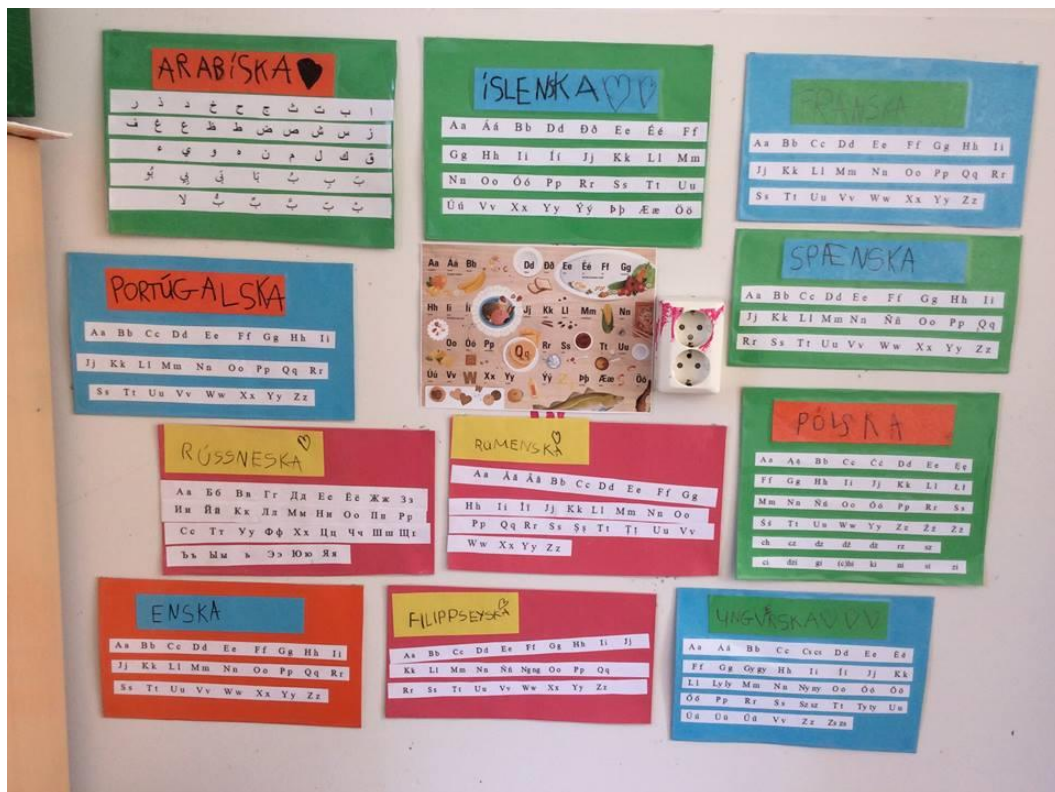 ARABÍSKA
ا ب ت ث ج ح خ د ذ ر
ز س ش ص ض ط ظ ع غ ف
ق ك ل م ن ه و ي ء
لا
ÍSLENSKA
Aa Áá Bb Dd Ðð Ee Éé Ff
Gg Hh Ii Íí Jj Kk Ll Mm
Nn Oo Óó Pp Rr Ss Tt Uu
Úú Vv Xx Yy Ýý Þþ Ææ Öö
FRANSKA
Aa Bb Cc Dd Ee Ff Gg Hh Ii
Jj Kk Ll Mm Nn Oo Pp Qq Rr
Ss Tt Uu Vv Ww Xx Yy Zz
PORTÚGALSKA
Aa Bb Cc Dd Ee Ff Gg Hh Ii
Jj Kk Ll Mm Nn Oo Pp Qq Rr
Ss Tt Uu Vv Ww Xx Yy Zz
Aa Áá Bb Dd Ðð Ee Éé Ff Gg
Hh Ii Íí Jj Kk Ll Mm Nn
Oo Óó Pp Qq Rr Ss Tt Uu
Úú Vv W Xx Yy Ýý Z Þþ Ææ Öö
SPÆNSKA
Aa Bb Cc Dd Ee Ff Gg Hh Ii
Jj Kk Ll Mm Nn Ññ Oo Pp Qq
Rr Ss Tt Uu Vv Ww Xx Yy Zz
RÚSSNESKA
Аа Бб Вв Гг Дд Ее Ёё Жж Зз
Ии Йй Кк Лл Мм Нн Оо Пп Рр
Сс Тт Уу Фф Хх Цц Чч Шш Щщ
Ъъ Ыы ь Ээ Юю Яя
RÚMENSKA
Aa Ăă Ââ Bb Cc Dd Ee Ff Gg
Hh Ii Îî Jj Kk Ll Mm Nn Oo
Pp Qq Rr Ss Șș Tt Țț Uu Vv
Ww Xx Yy Zz
PÓLSKA
Aa Ąą Bb Cc Ćć Dd Ee Ęę
Ff Gg Hh Ii Jj Kk Ll Łł
Mm Nn Ńń Oo Óó Pp Rr Ss
Śś Tt Uu Ww Yy Zz Źź Żż
ch cz dz dź dż rz sz
ci dzi gi (c)hi ki ni si zi
ENSKA
Aa Bb Cc Dd Ee Ff Gg Hh Ii
Jj Kk Ll Mm Nn Oo Pp Qq Rr
Ss Tt Uu Vv Ww Xx Yy Zz
FILIPPSEYSKA
Aa Bb Cc Dd Ee Ff Gg Hh Ii Jj
Kk Ll Mm Nn Ññ Ngng Oo Pp Qq
Rr Ss Tt Uu Vv Ww Xx Yy Zz
UNGVERSKA
Aa Áá Bb Cc Cscs Dd Ee Éé
Ff Gg Gygy Hh Ii Íí Jj Kk
Ll Lyly Mm Nn Nyny Oo Óó Öö
Őő Pp Rr Ss Szsz Tt Tyty Uu
Úú Üü Űű Vv Zz Zszs